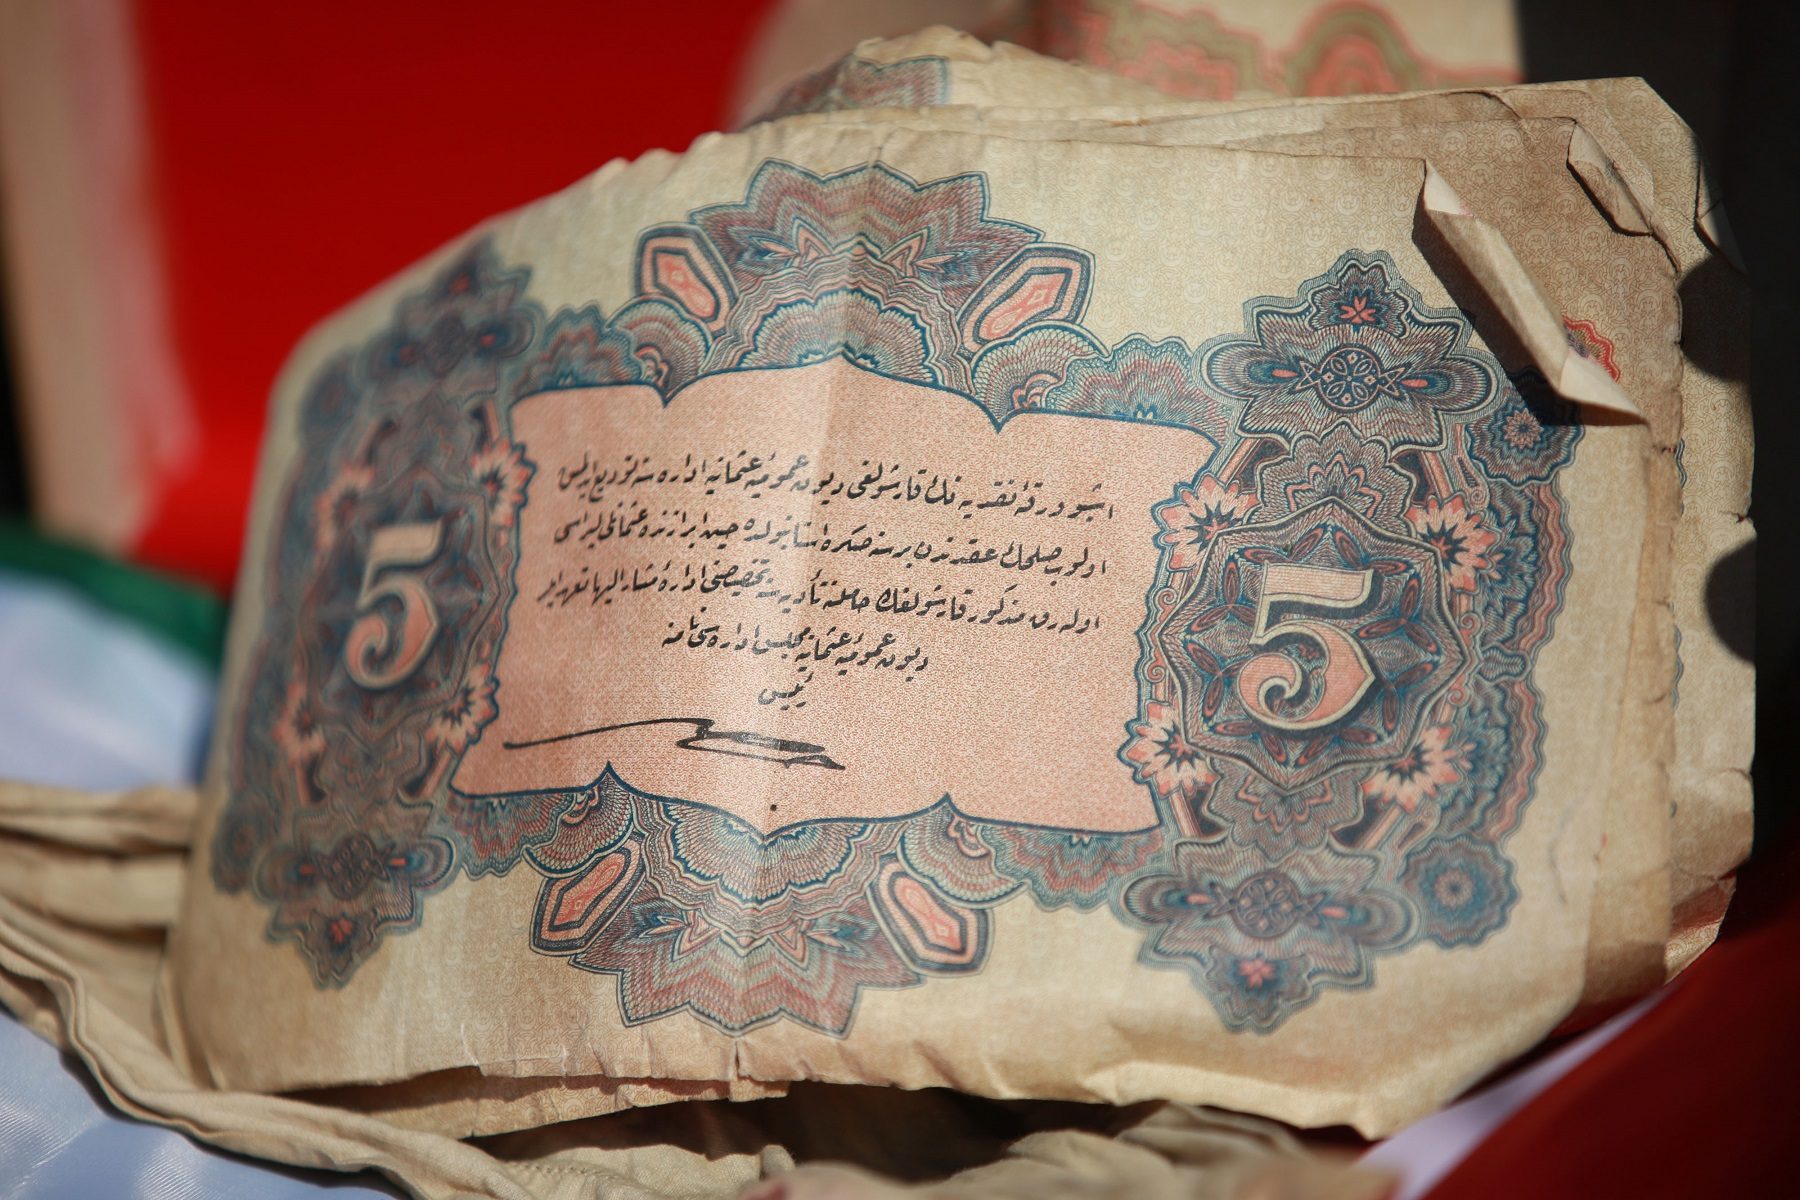 اشبو ورقهٔ نقدیه نك قارشولغی دیون عمومیهٔ عثمانیه اداره سنه تودیع ایدلمش
اولوب صلحك عقدندن بر سنه صكره استانبولده حین ابرازنده عثمانلی لیراسی
اوله رق مذكور قارشولغك حاملنه تأدیه سنه تخصیصنی ادارهٔ مشار الیها تعهد ایدر
دیون عمومیهٔ عثمانیه مجلس اداره سی نامنه
رئیس
5
5